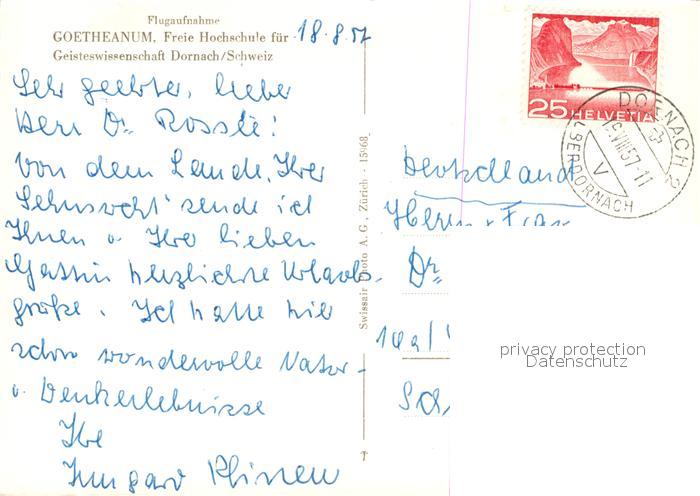 Flugaufnahme
GOETHEANUM, Freie Hochschule für
Geisteswissenschaft Dornach/Schweiz
18.8.57
Sehr geehrter, lieber
Herr Dr.
Von dem Lande, Ihrer
Sehnsucht sende ich
Ihnen u. Ihrer lieben
Gattin herzlichste Urlaubs-
grüße. Ich hatte hier
schon wundervolle Natur-
u. Denkerlebnisse
Ihre
Irmgard
Swissair Photo A. G., Zürich - 15968
25 HELVETIA
DORNACH 2
OBERDORNACH
V
Deutschland
Herrn u. Frau
Dr.
privacy protection
Datenschutz